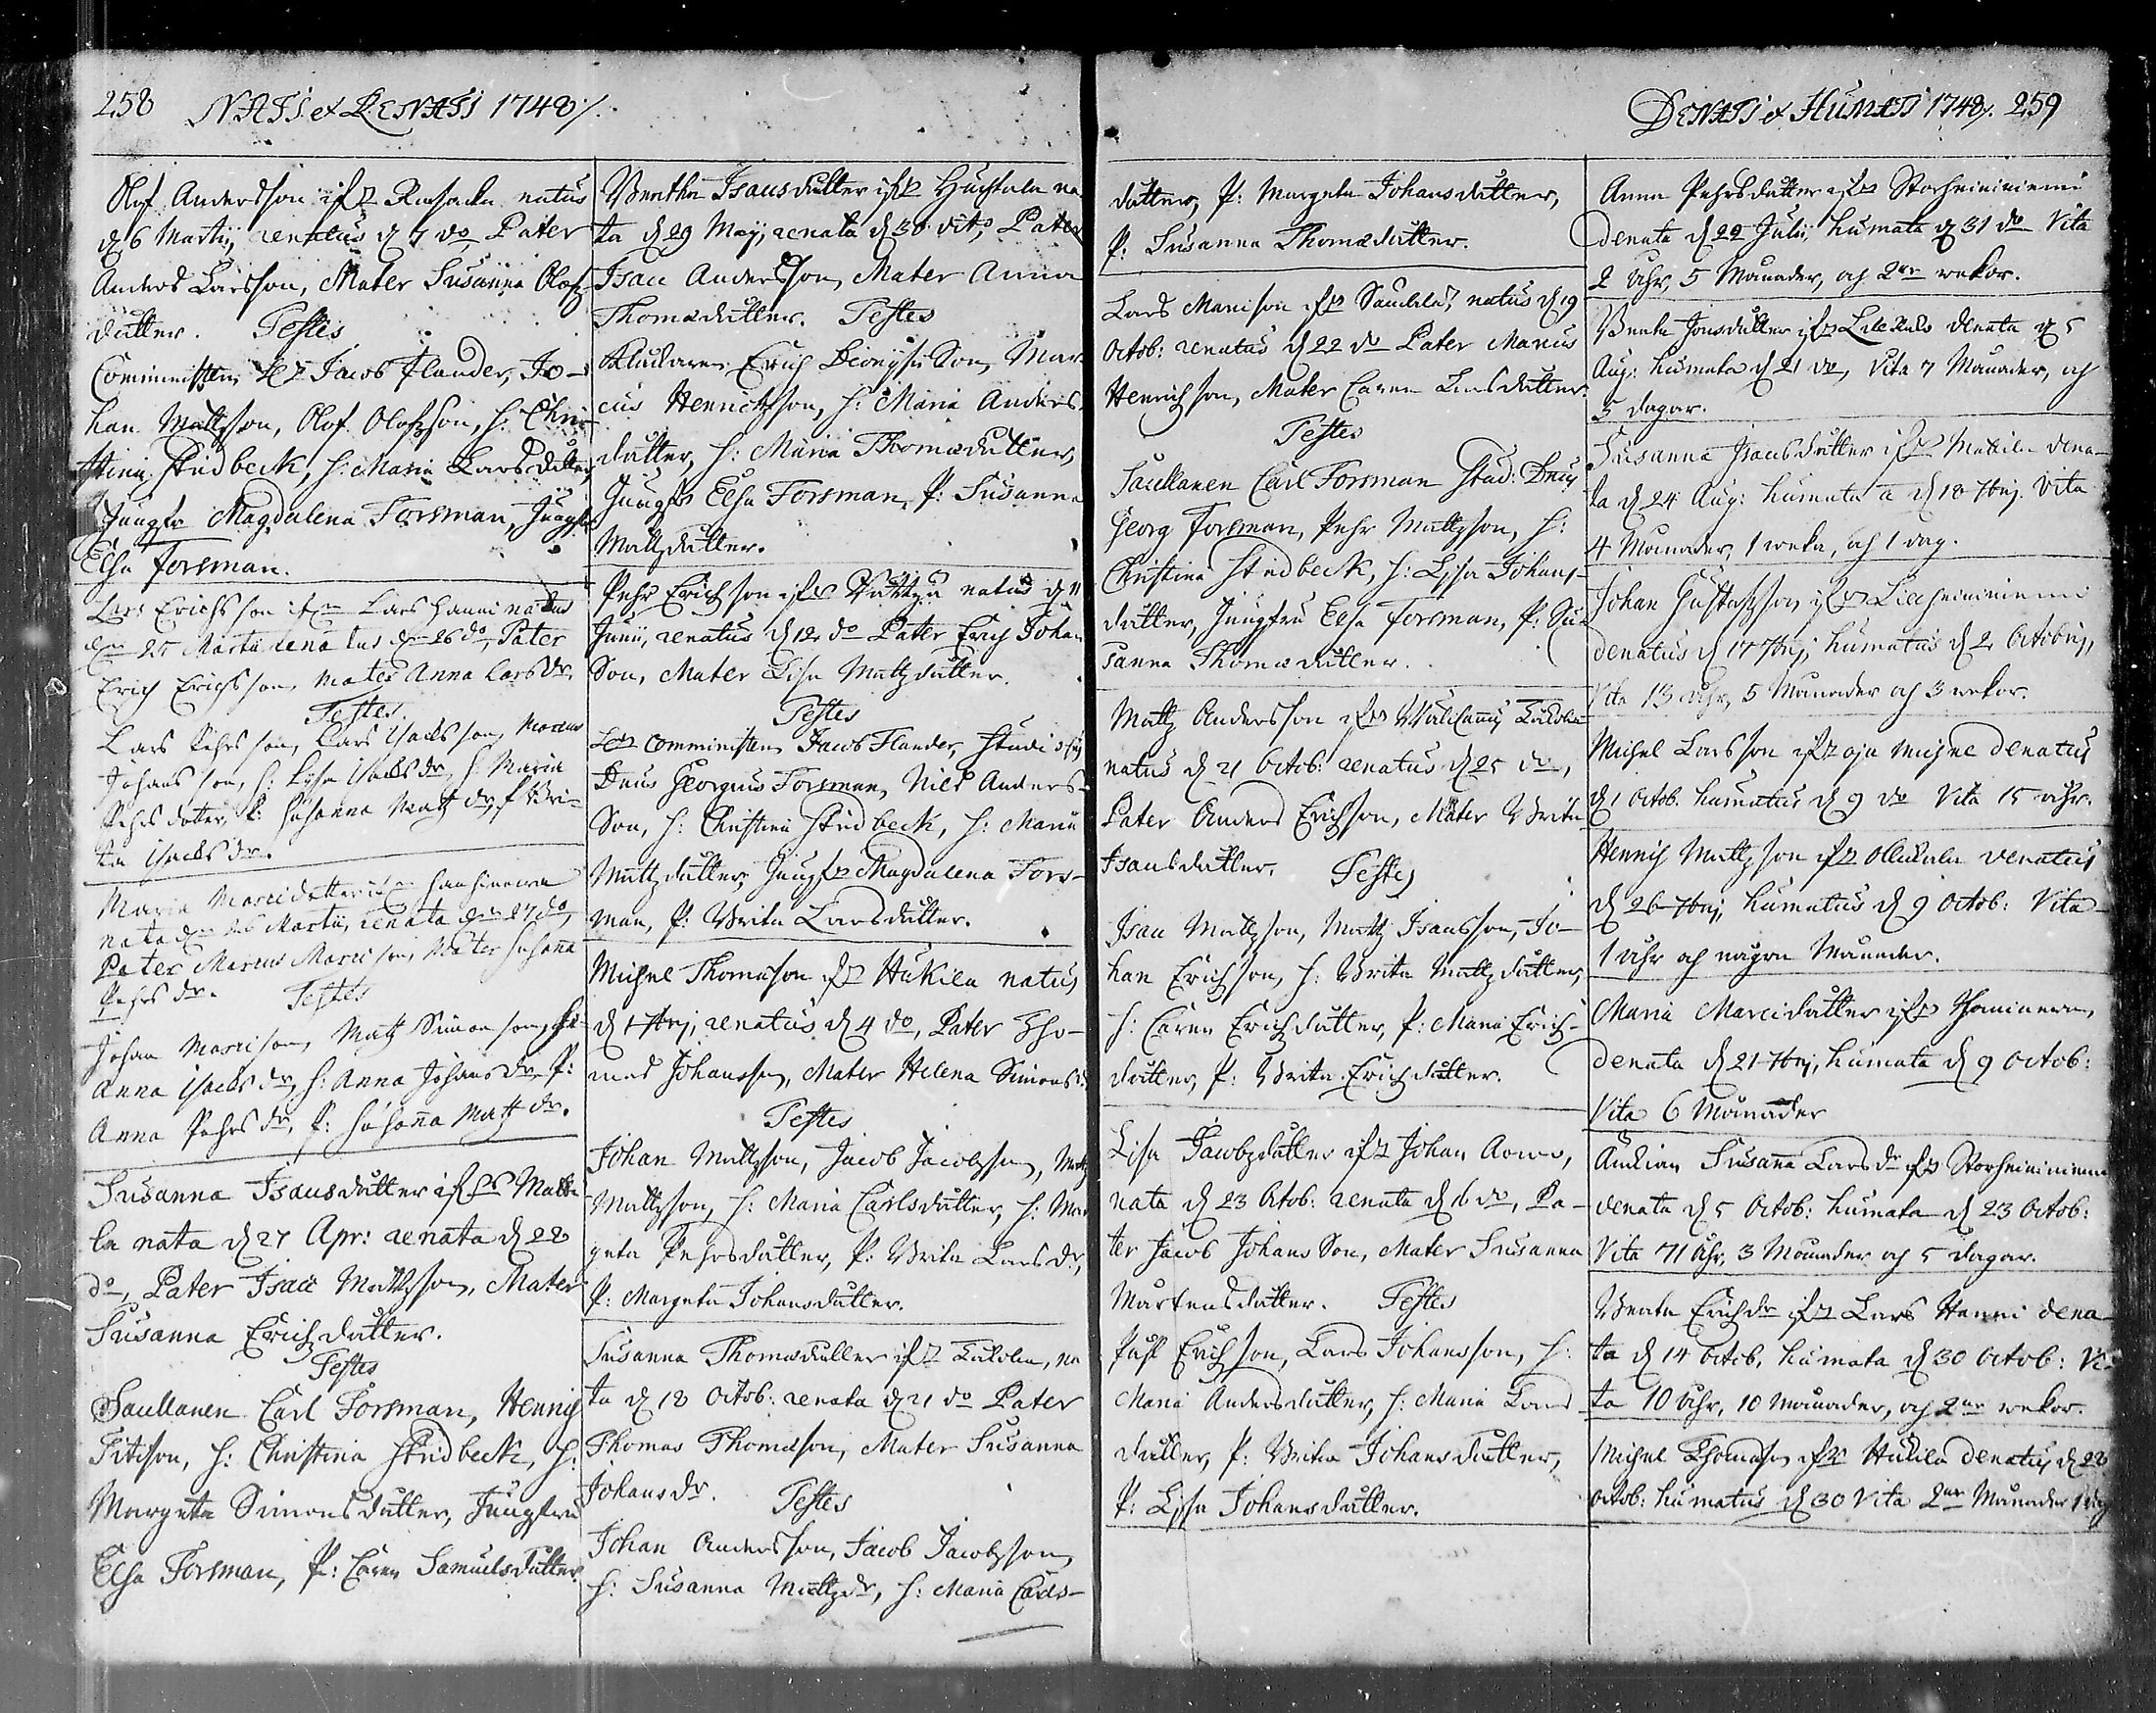 258 NATI et RENATI 1748/.
Olof Andersson ifr Rasacka natus
d 6 Martij, renatus d 7 do Pater
Anders Larsson, Mater Susanna Olofz
dutter. Testes
Comministern Jacob Flander, Jo-
han Mattzson, Olof Olofzson, h: Chri-
stina Stridbeck, h: Maria Larsdutter,
Jungfr Magdalena Forsman, Jungfr
Elsa Forsman.
Lars Erichsson ifrn Lars Hanni natus
den 25 Martii renatus den 26 do, Pater
Erich Erichsson, Mater Anna Larsdr,
Testes.
Lars Pehrsson, Lars Isacksson, Marcus
Johansson, h: Lisa Isacksdr, h: Maria
Pehrsdotter, P: Susanna Mattzdr, P Bri-
ta Isacksdr.
Maria Marcidotter
nata den 26 Martii, renata den 27 do,
Pater Marcus Marcison, Mater Susanna
Pehrsdr. Testes
Johan Marcison, Matz Simonson, h:
Anna Isacksdr, h: Anna Johansdr, P:
Anna Pehrsdr, P: Susanna Mattzdr.
Susanna Isacsdutter ifr Matti-
la nata d 27 Apr: renata d 28
do, Pater Isac Mattzson, Mater
Susanna Erichzdutter.
Testes
Saullanen Carl Forsman, Henrich
h: Christina Stridbeck, h:
Margeta Simonsdutter, Jungfru
Elsa Forsman, P: Caren Samuelsdutter.
Beatha Isacsdutter ifr Huhtala na-
ta d 29 Maij, renata d 30 dito, Pater
Isac Andersson, Mater Anna
Thomædutter. Testes
Erich Dionysii Son, Mar-
cus Henrichzson, h: Maria Anders-
dutter, h: Maria Thomædutter,
Jungfr Elsa Forsman, P: Susanna
Mattzdutter.
Pehr Erichson natus d 11
Junii, renatus d 12 do Pater Erich Johan
Son, Mater Lisa Mattzdutter.
Testes
Comministern Jacob Flander, Studiosus
Dnus Georgius Forsman, Nils Anders-
Son, h: Christina Stridbeck, h: Maria
Mattzdutter, Jungfr Magdalena Fors-
man, P: Brita Larsdutter.
Michel Thomæson ifr Hukila natus
d 1 7brij, renatus d 4 do, Pater Tho-
mas Johansson, Mater Helena Simonsdr
Testes
Johan Mattzson, Jacob Jacobzson, Mattz
Mattzson, h: Maria Carlsdutter, h: Mar
geta Pehrsdutter, P: Brita Larsdr,
P: Margeta Johansdutter.
Susanna Thomædutter ifr Tuicola, na
ta d 18 Octob: renata d 21 do Pater
Thomas Thomæson, Mater Susanna
Johansdr. Testes
Johan Andersson, Jacob Jacobzson,
h: Susanna Mattzdr, h: Maria Carls-
DENATI et HUMATI 1748/. 259
dutter, P: Margeta Johansdutter,
P: Susanna Thomædutter.
Lars Marcison ifr natus d 19
Octob: renatus d 22 do Pater Marcus
Henrichson, Mater Caren Larsdutter.
Testes
Saullanen Carl Forsman Stud: Dnus
Georg Forsman, Pehr Mattzson, h:
Christina Stridbeck, h: Lisa Johans-
dutter, Jungfru Elsa Forsman, P: Su-
sanna Thomædutter.
Mattz Andersson ifr
natus d 21 Octob: renatus d 25 do,
Pater Anders Erichson, Mater Brita
Isacsdutter. Testes
Isac Mattzson, Mattz Isacsson, Jo-
han Erichson, h: Brita Mattzdutter,
h: Caren Erichzdutter, P: Maria Erich-
dutter, P: Brita Erichdutter.
Lisa Jacobzdutter ifr Johan Arwo,
nata d 23 Octob: renata d 6 do, Pa-
ter Jacob Johans Son, Mater Susanna
Martensdutter. Testes
Påhl Erichson, Lars Johansson, h:
Maria Andersdutter, h: Maria Lars-
dutter, P: Brita Johansdutter,
P: Lisa Johansdutter.
Anna Pehrsdutter ifr Storheininiemi
Denata d 22 Julii, humata d 31 do Vita
2 åhr, 5 Månader, och 2ne wekor.
Beata Jönsdutter ifr denata d 5
Aug: humata d 21 do, Vita 7 Månader, och
5 dagar.
Susanna Isacsdutter ifr Mattila dena-
ta d 24 Aug: humata d 18 7brij. Vita
4 Månader, 1 weka, och 1 dag.
Johan Gustafzson ifr
denatus d 17 7brij, humatus d 2 Octobrij,
Vita 13 åhr, 5 Månader och 3 wekor.
Michel Larsson ifr denatus
d 1 Octob. humatus d 9 do Vita 15 åhr.
Henrich Mattzson ifr Ollickala denatus
d 26 7brij, humatus d 9 Octob: Vita
1 åhr och några Månader.
Maria Marcidutter ifr
denata d 21 7brij, humata d 9 Octob:
Vita 6 Månader
Änckian Susanna Larsdr ifr Storheininiemi
denata d 5 Octob: humata d 23 Octob:
Vita 71 åhr, 3 Månader och 5 dagar.
Beata Erichdr ifr Lars Hanni dena-
ta d 14 Octob. humata d 30 Octob: Vi-
ta 10 åhr, 10 Månader, och 2ne wekor.
Michel Thomæson ifr Hukila denatus d 28
Octob: humatus d 30 Vita 2ne Månader 1 dag